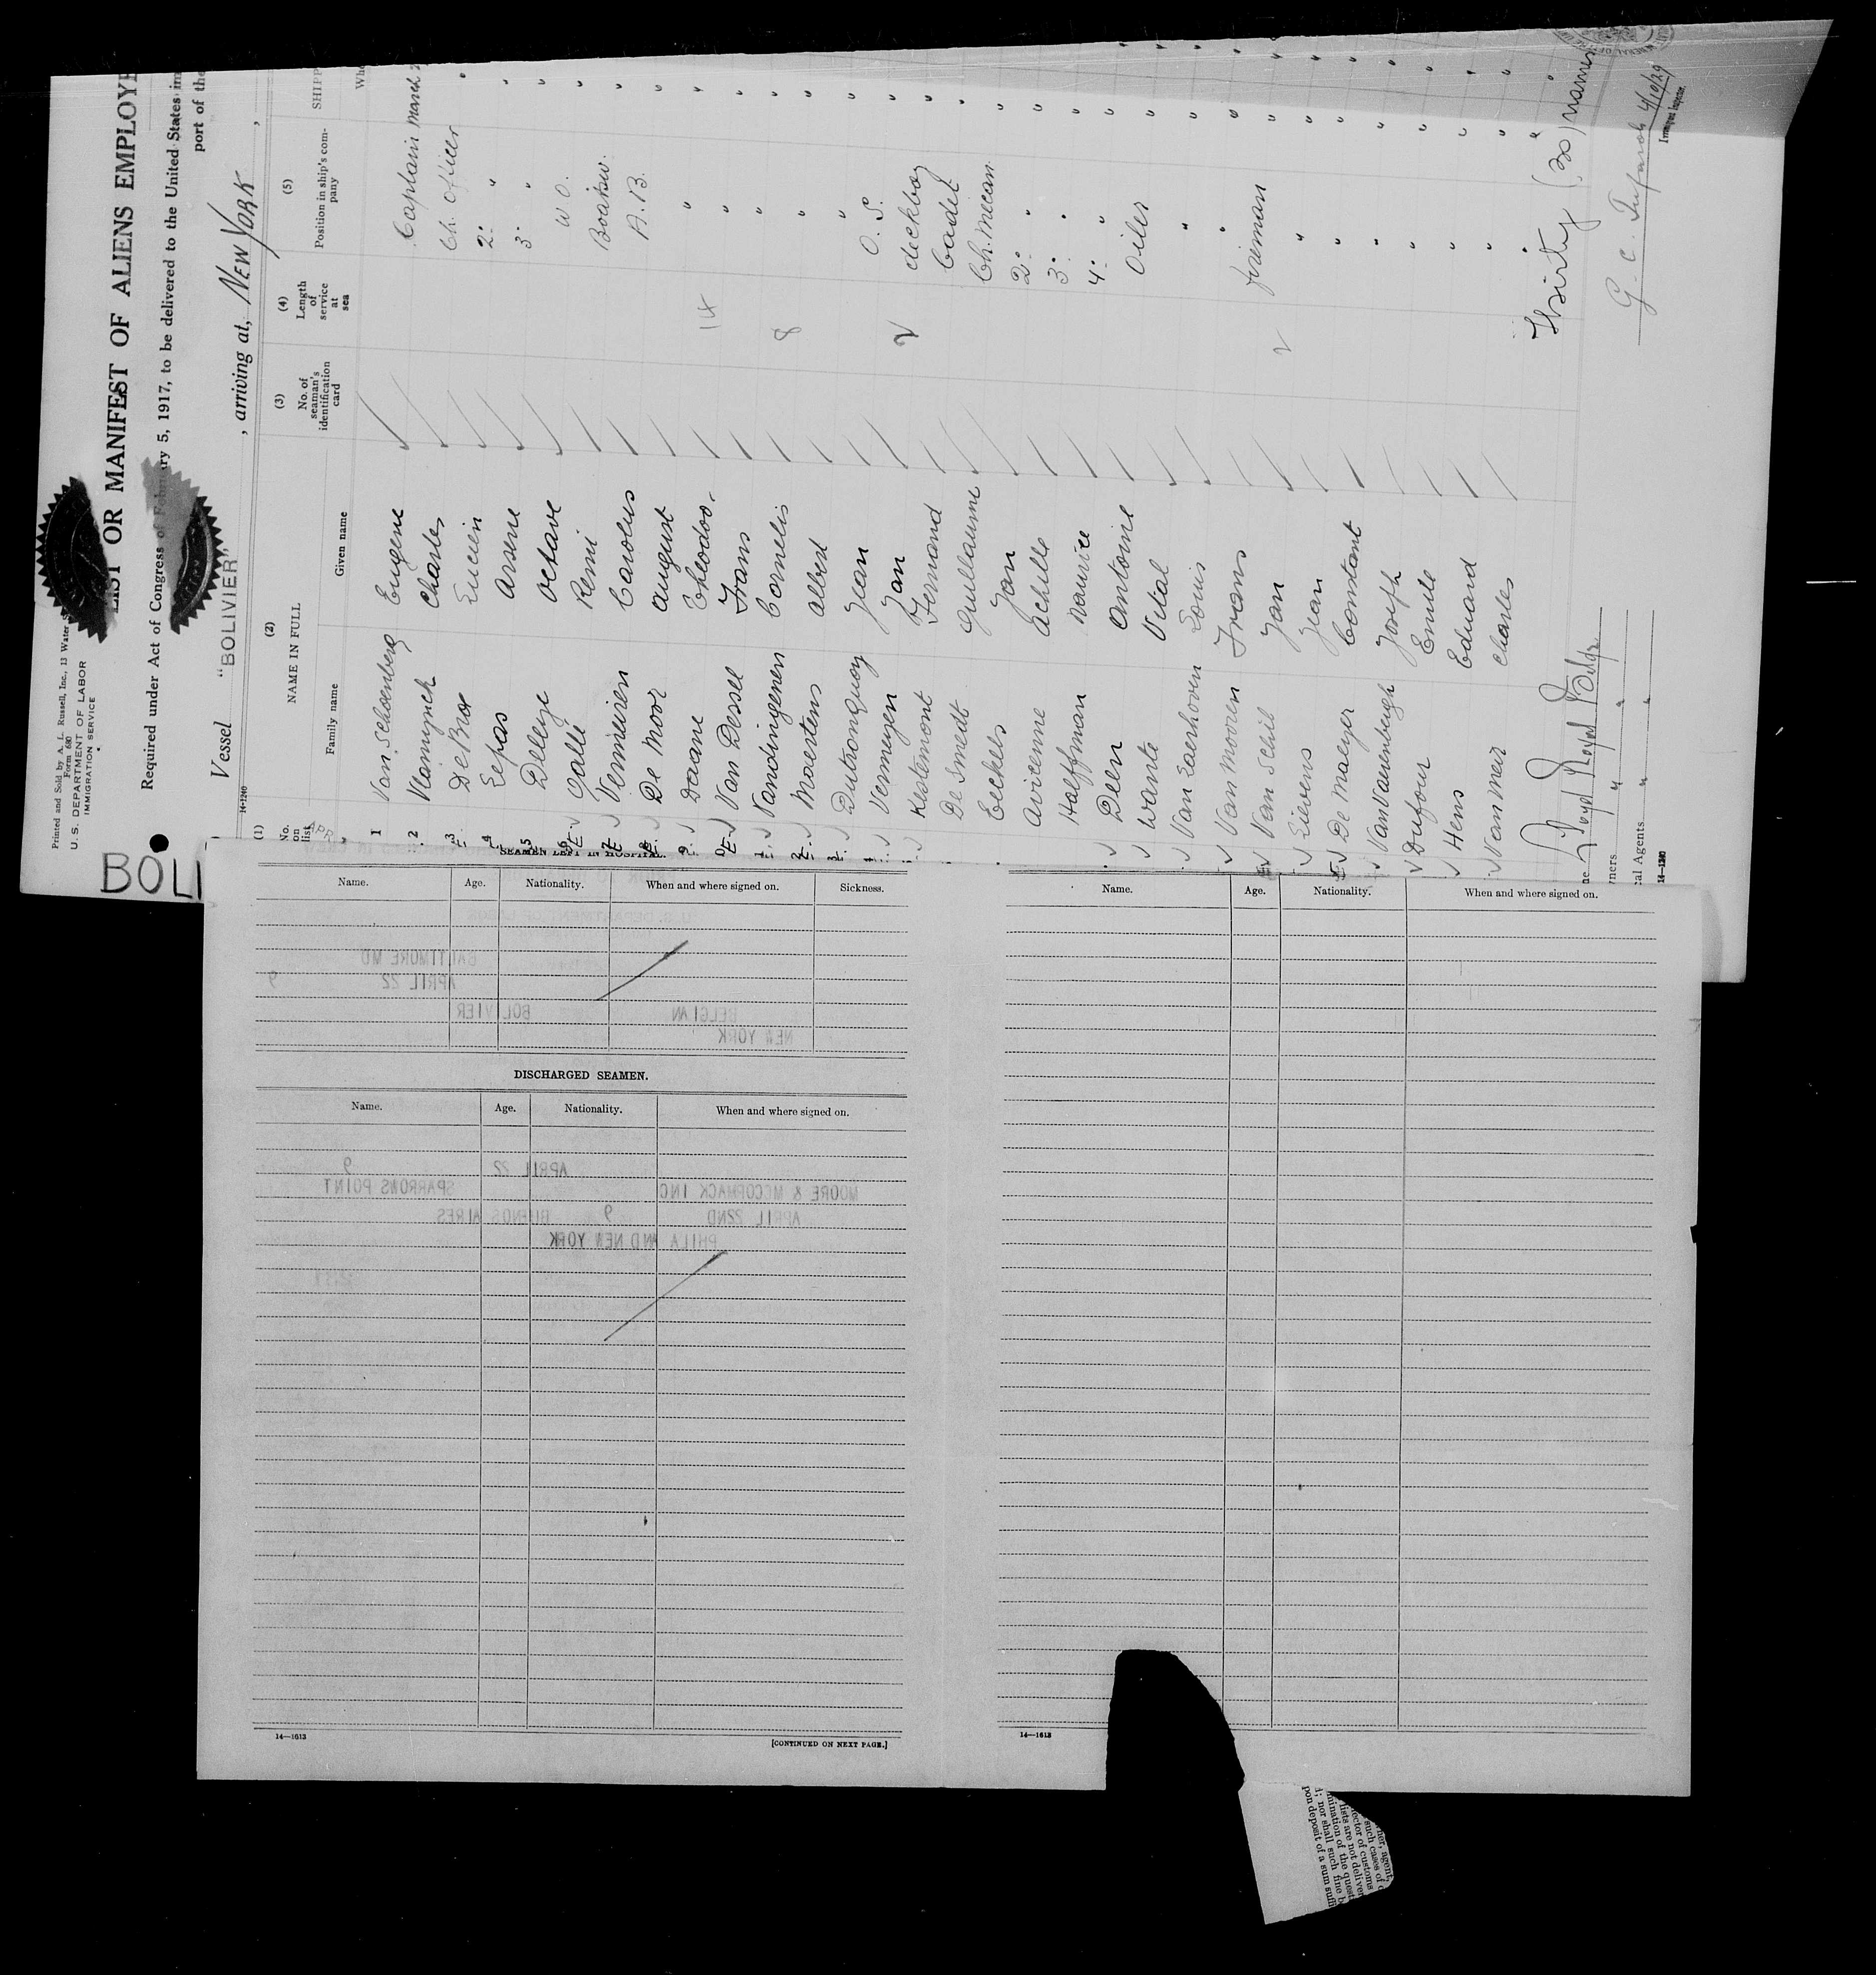 Printed and Sold by A. L. Russell, Inc., 13 Water
Form 680
U. S. DEPARTMENT OF LABOR
IMMIGRATION SERVICE
LIST OR MANIFEST OF ALIENS EMPLOYE
Required under Act of Congress of February 5, 1917, to be delivered to the United States im
port of the
Vessel "BOLIVIER", arriving at, NEW YORK,
14-1240
(1) (2) (3) (4) (5)
No. on list NAME IN FULL No. of seaman's identification card Length of service at sea Position in ship's company SHIPP
Family name Given name Whe
1 Van Schoenberg Eugene Captain March
2 Vlaminck Charles Ch. Officer "
3 De Bra Lucien 2° " "
4 Lepas Arsene 3° " "
5 Delleye Octave W O. "
6 Galle Remi Boatsw. "
7 Vermeiren Carolus A.B. "
8 De Moor August " "
9 Daane Theodoo. 14 " "
0 Van Dessel Frans " "
1 Vandingenen Cornelis 8 " "
2 Maertens Albert " "
3 Dutronquoy Jean O. S. "
4 Vermeyen Jan deckboy "
Kestemont Fernand Cadet "
De Smedt Guillaume Ch. Mecan. "
Eeckels Jan 2° " "
Avicenne Achille 3° " "
Halffman Maurice 4° " "
Deen Antoine Oiler "
Wante Vital " "
Van Laerhoven Louis " "
Van Mooren Frans fireman "
Van Schil Jan " "
Lievens Jean " "
De Maeyer Constant " "
Van Varenbergh Joseph " "
Dufour Emile " "
Hens Eduard " "
Van Meir Charles " "
Thirty (30) names
Lloyd Royal Belge
wners " "
al Agents " "
14-1240
4/10/29
Immigrant Inspector.
BOLI
SEAMEN LEFT IN HOSPITAL.
Name. Age. Nationality. When and where signed on. Sickness.
BALTIMORE MD
APRIL 22 9
BELGIAN BOLIVIER
NEW YORK
DISCHARGED SEAMEN.
Name. Age. Nationality. When and where signed on.
APRIL 22 9
MOORE & MCCORMACK INC SPARROWS POINT
APRIL 22ND 9 BUENOS AIRES
PHILA AND NEW YORK
14—1613
[CONTINUED ON NEXT PAGE.]
Name. Age. Nationality. When and where signed on.
14—1613
her, agent,
such cases of
ector of customs
lists are not deliver
mination of the quest
l; nor shall such fine b
pon deposit of a sum suffi